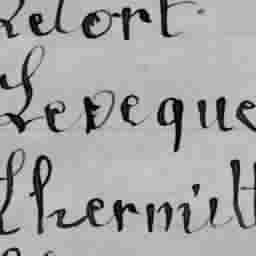 Relort
Leveque
Lhermitt